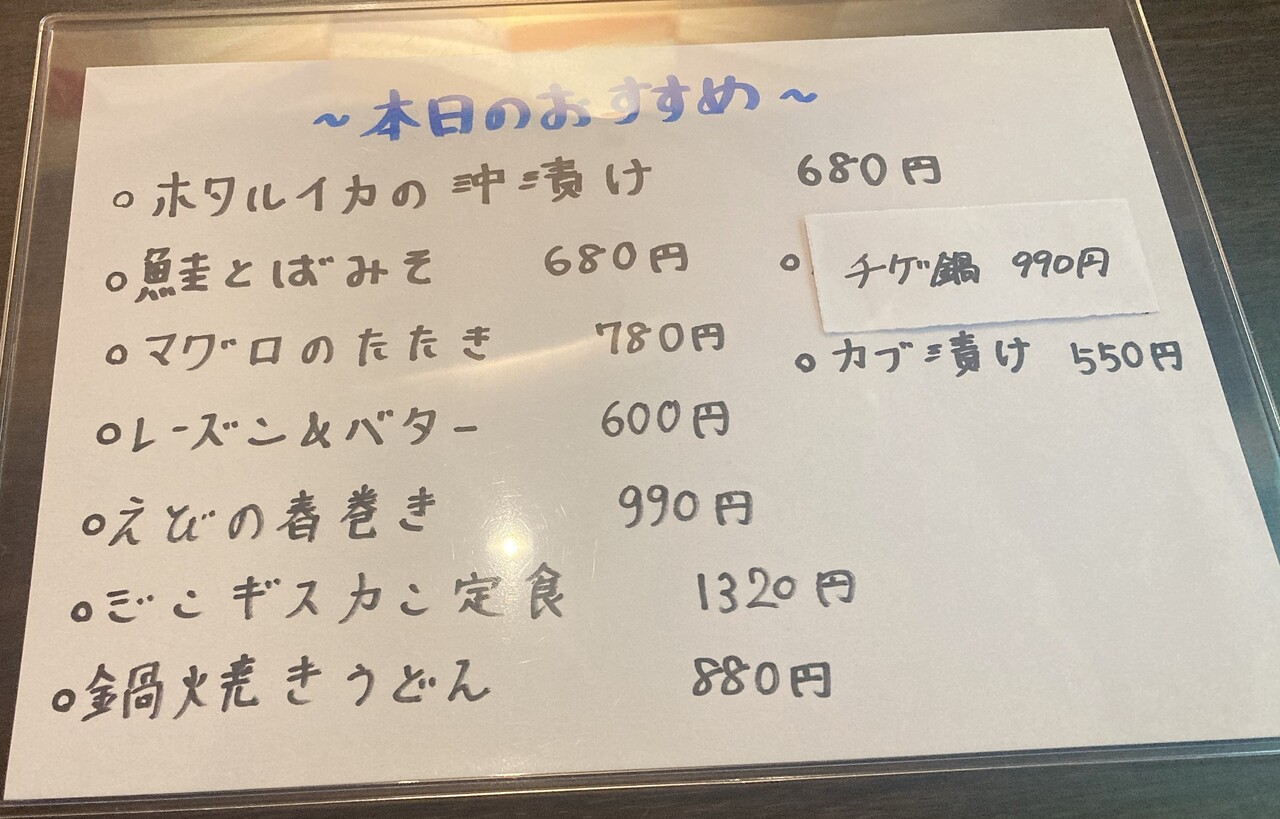 ~本日のおすすめ~
○ホタルイカの沖漬け 680円
○鮭とばみそ 680円
○チゲ鍋 990円
○マグロのたたき 780円
○カブ漬け 550円
○レーズン&バター 600円
○えびの春巻き 990円
○ジンギスカン定食 1320円
○鍋焼きうどん 880円